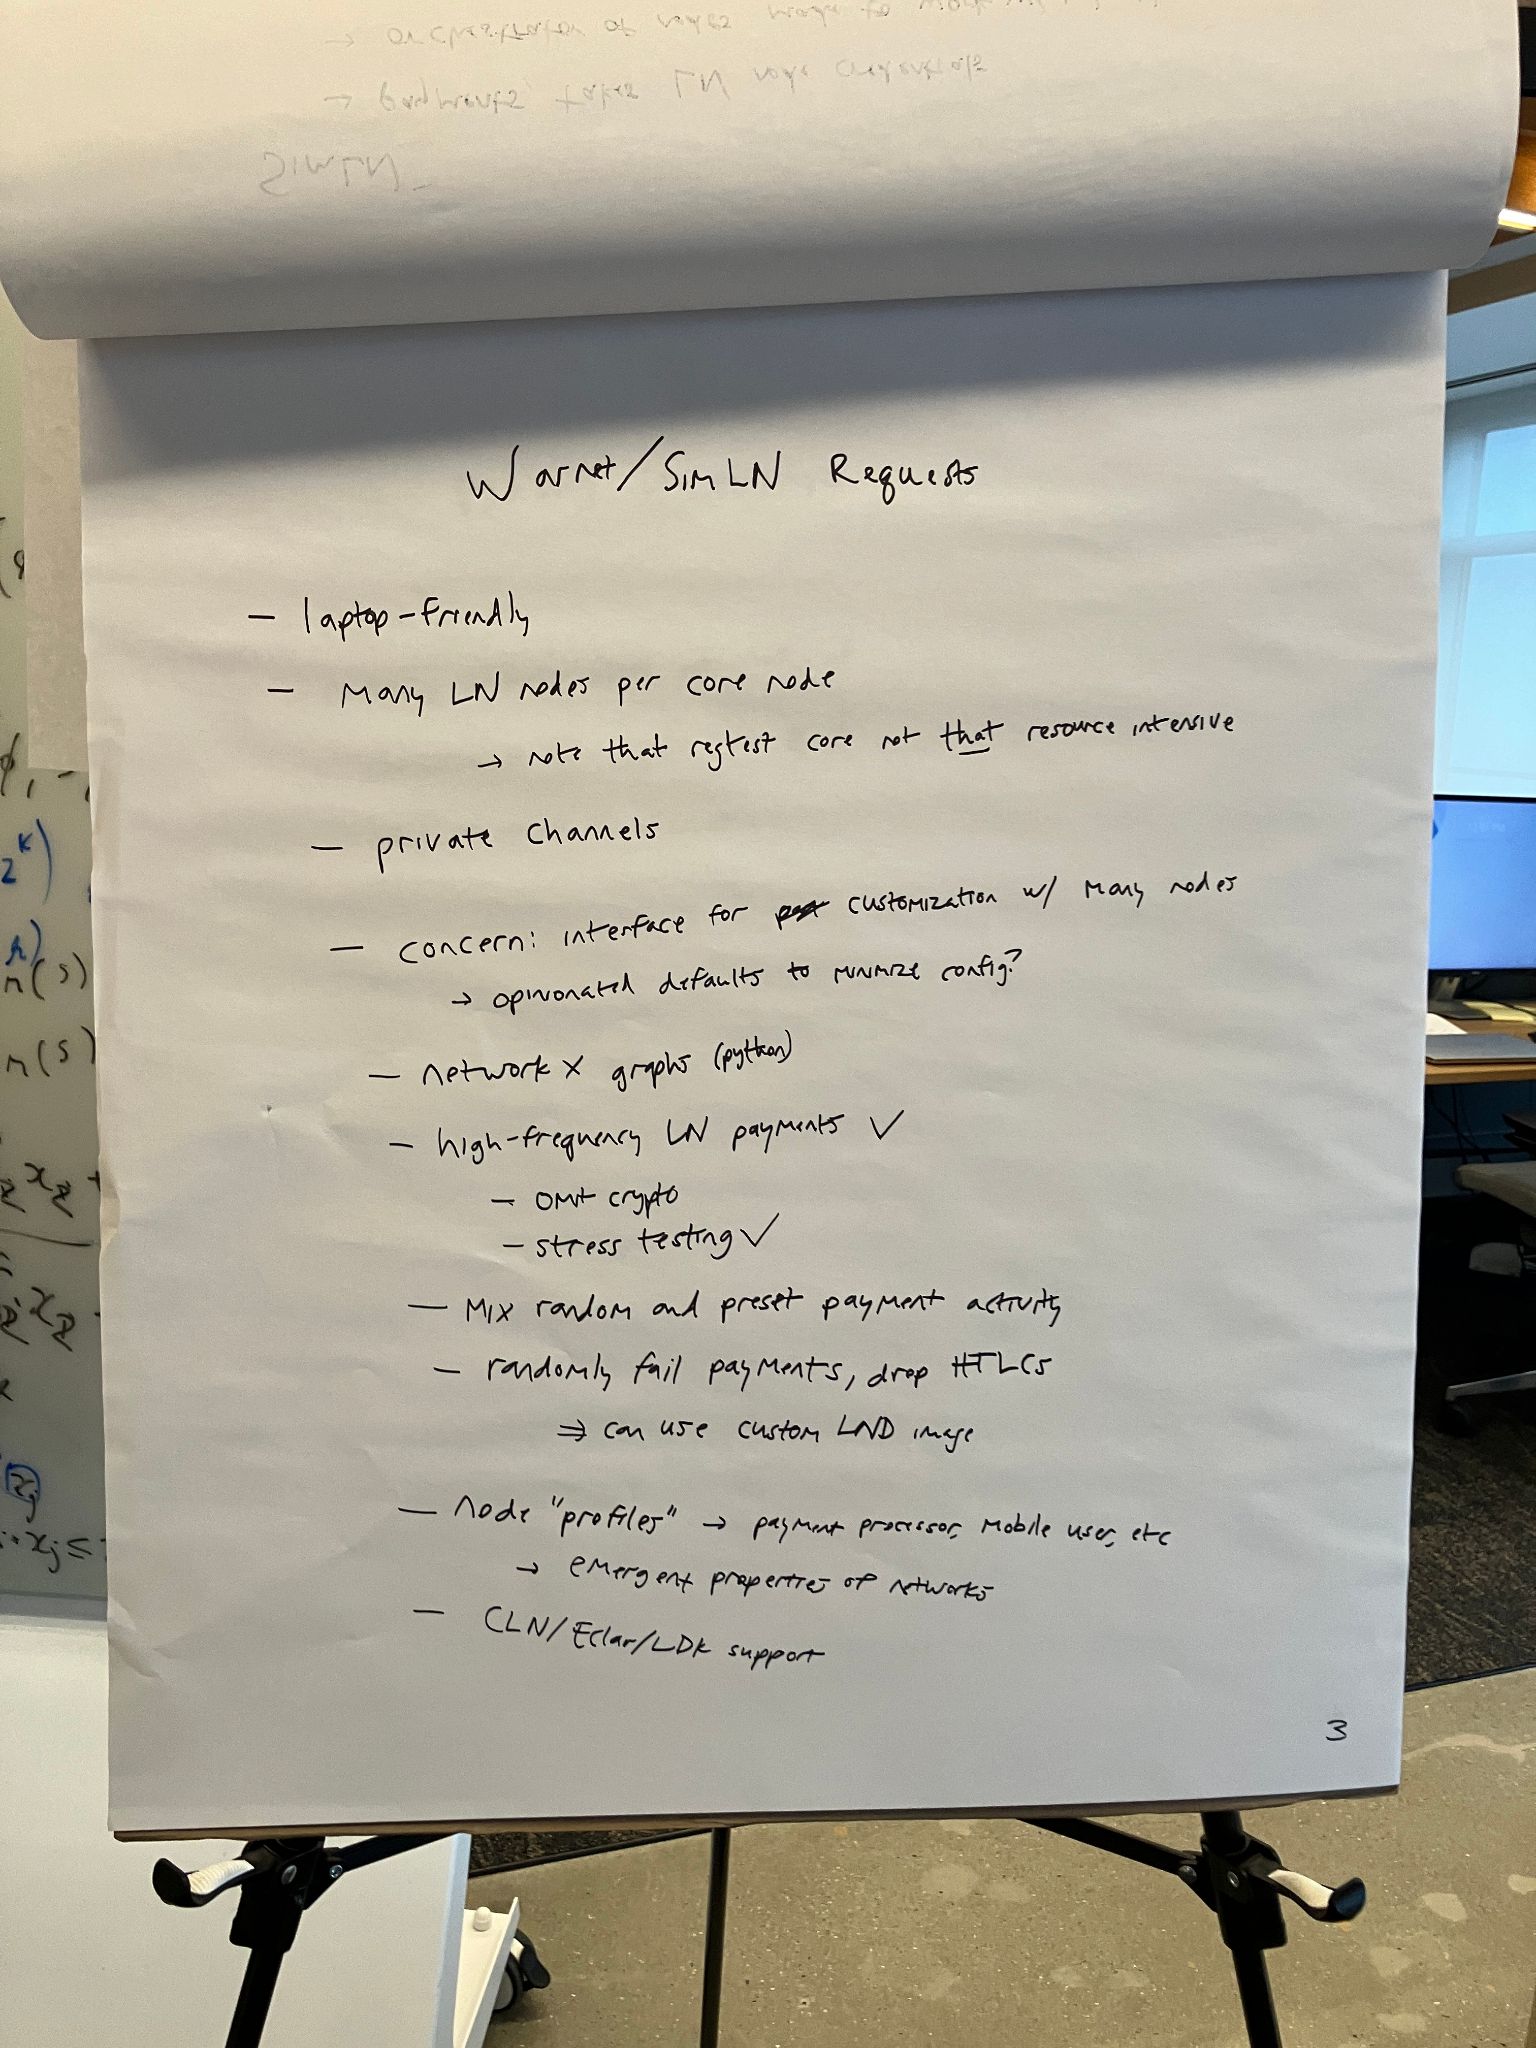 Warnet/SimLN Requests
- laptop-friendly
- Many LN nodes per core node
→ note that regtest core not that resource intensive
- private channels
- concern: interface for customization w/ many nodes
→ opinionated defaults to minimize config?
- network x graphs (python)
- high-frequency LN payments ✓
- omit crypto
- stress testing ✓
- Mix random and preset payment activity
- randomly fail payments, drop HTLCs
⇒ can use custom LND image
- Node "profiles" → payment processor, mobile user, etc
→ emergent properties of networks
- CLN/Eclar/LDK support
3